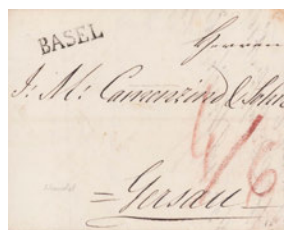 BASEL
Herren
J: M: Camenzind & Sohn
6/6
= Gersau